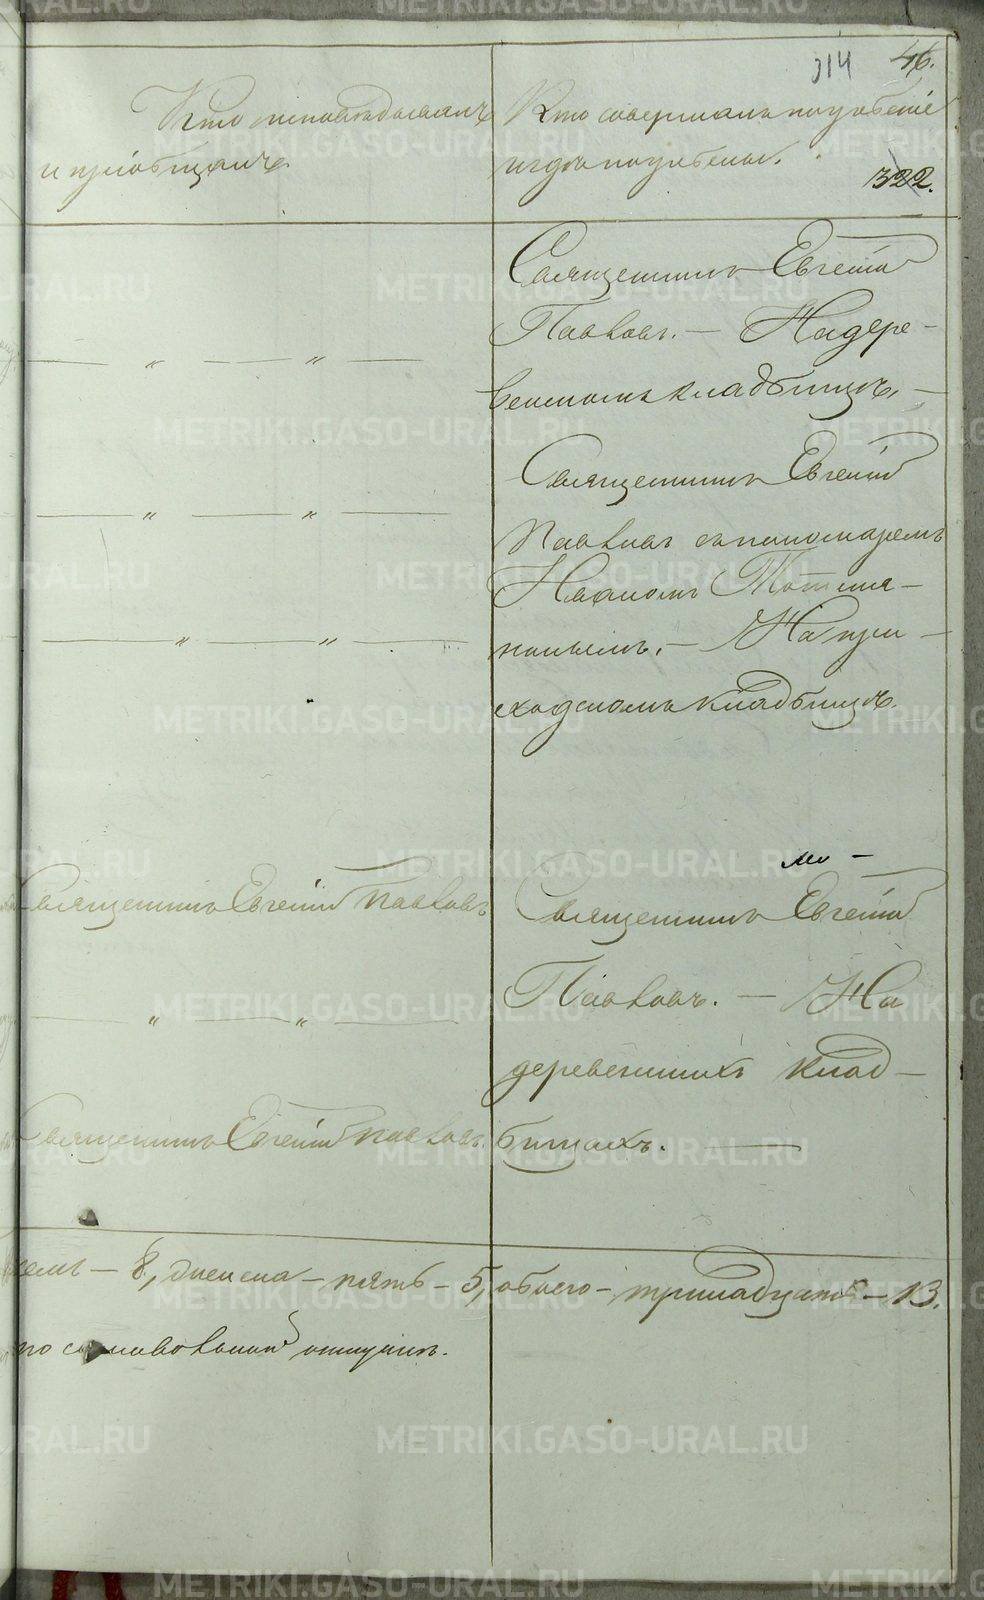 314 46.
Кто исповѣдывалъ
и пріобщалъ.
Кто совершалъ погребеніе
и гдѣ погребены.
322.
Священникъ Евгеній
Павловъ. — На дере-
венскомъ кладбищѣ. —
— " — " —
Священникъ Евгеній
Павловъ съ пономаремъ
Иваномъ
— " — " —
новымъ. — На при-
ходскомъ кладбищѣ.
— " — " —
Священникъ Евгеній Павловъ
Священникъ Евгеній
Павловъ. — На
деревенскихъ клад-
бищахъ. —
— " — " —
Священникъ Евгеній Павловъ.
— 8, женска — пять — 5, обоего — тринадцать — 13.
METRIKI.GASO-URAL.RU